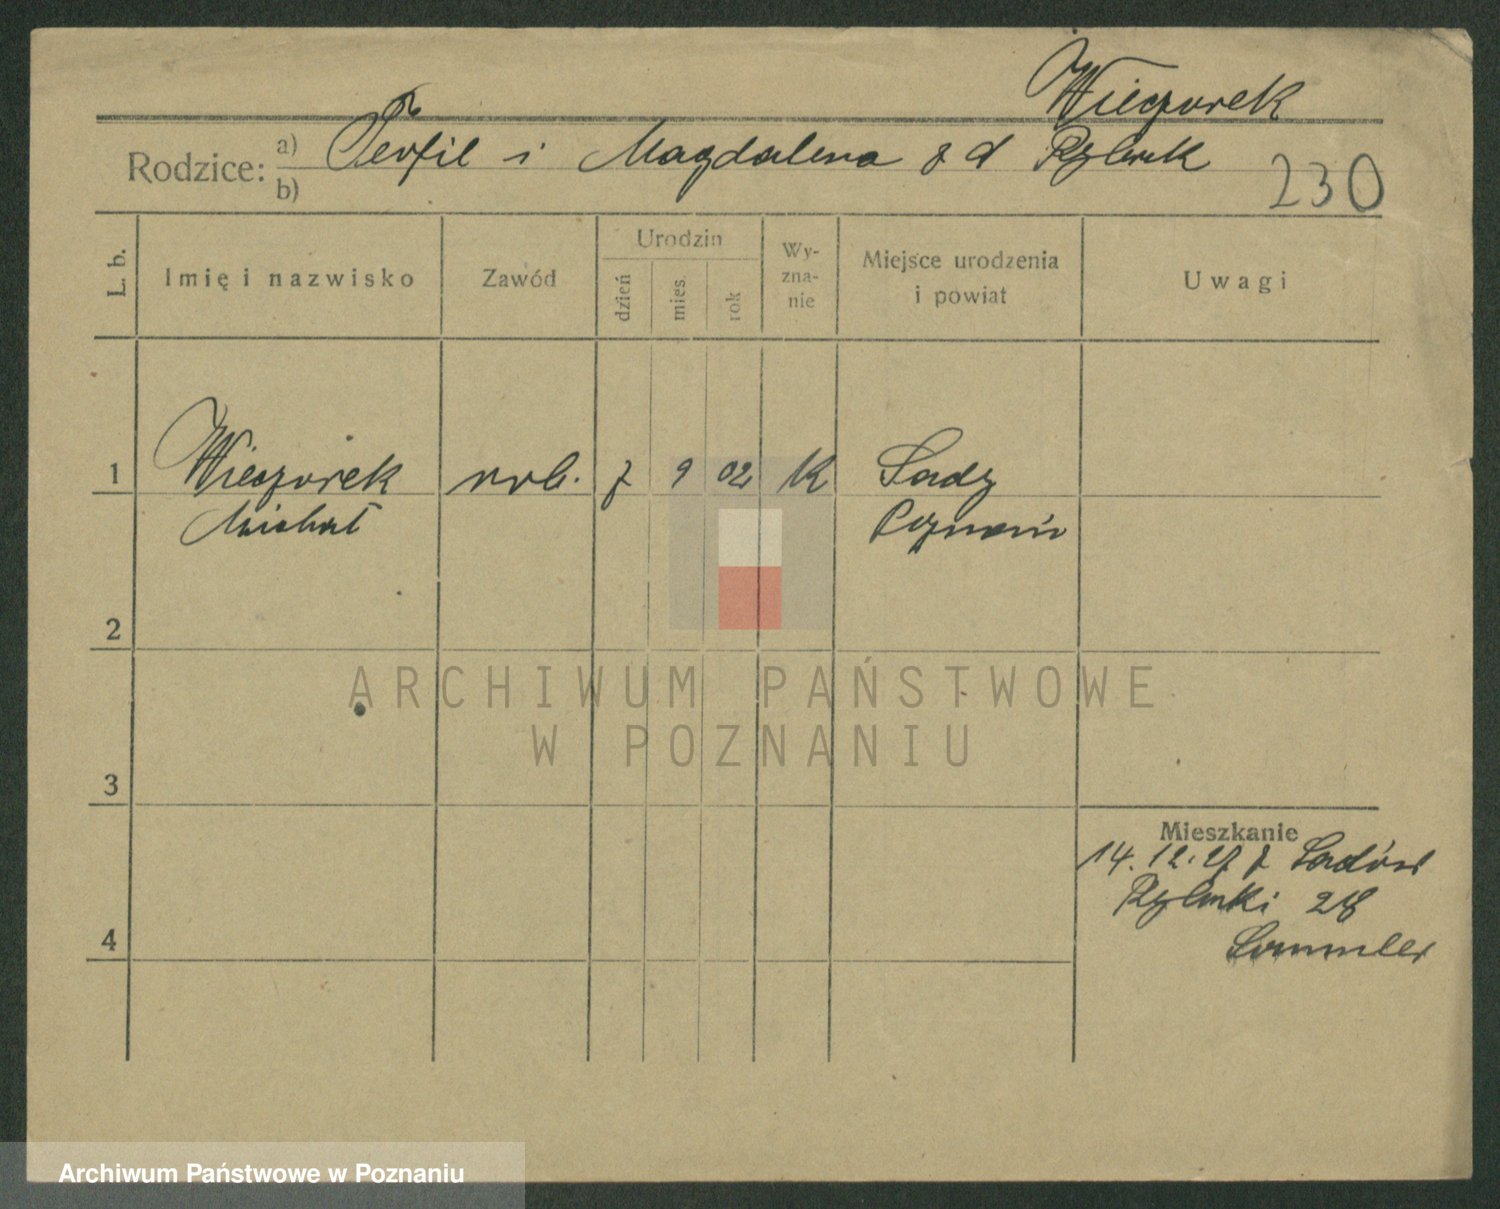 Wieczorek
Rodzice: a) Teofil i Magdalena z d
b)
230
L. b.
Imię i nazwisko
Zawód
Urodzin
dzień
mies.
rok
Wy-
zna-
nie
Miejsce urodzenia
i powiat
Uwagi
1 Wieczorek rob. 7 9 02 K Sady
Michał Poznań
2
3
4
Mieszkanie
14.12.27 z Sadów
28
ARCHIWUM PAŃSTWOWE
W POZNANIU
Archiwum Państwowe w Poznaniu